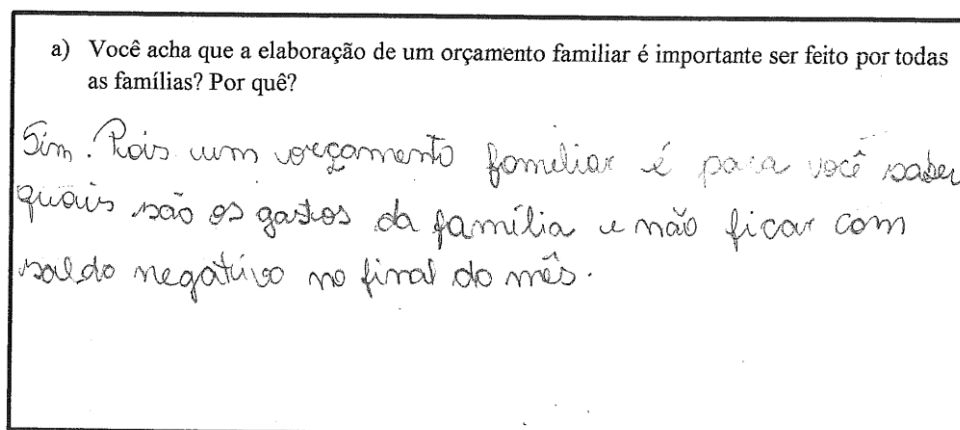 a) Você acha que a elaboração de um orçamento familiar é importante ser feito por todas
as famílias? Por quê?
Sim. Pois um orçamento familiar é para você saber
quais são os gastos da família e não ficar com
saldo negativo no final do mês.